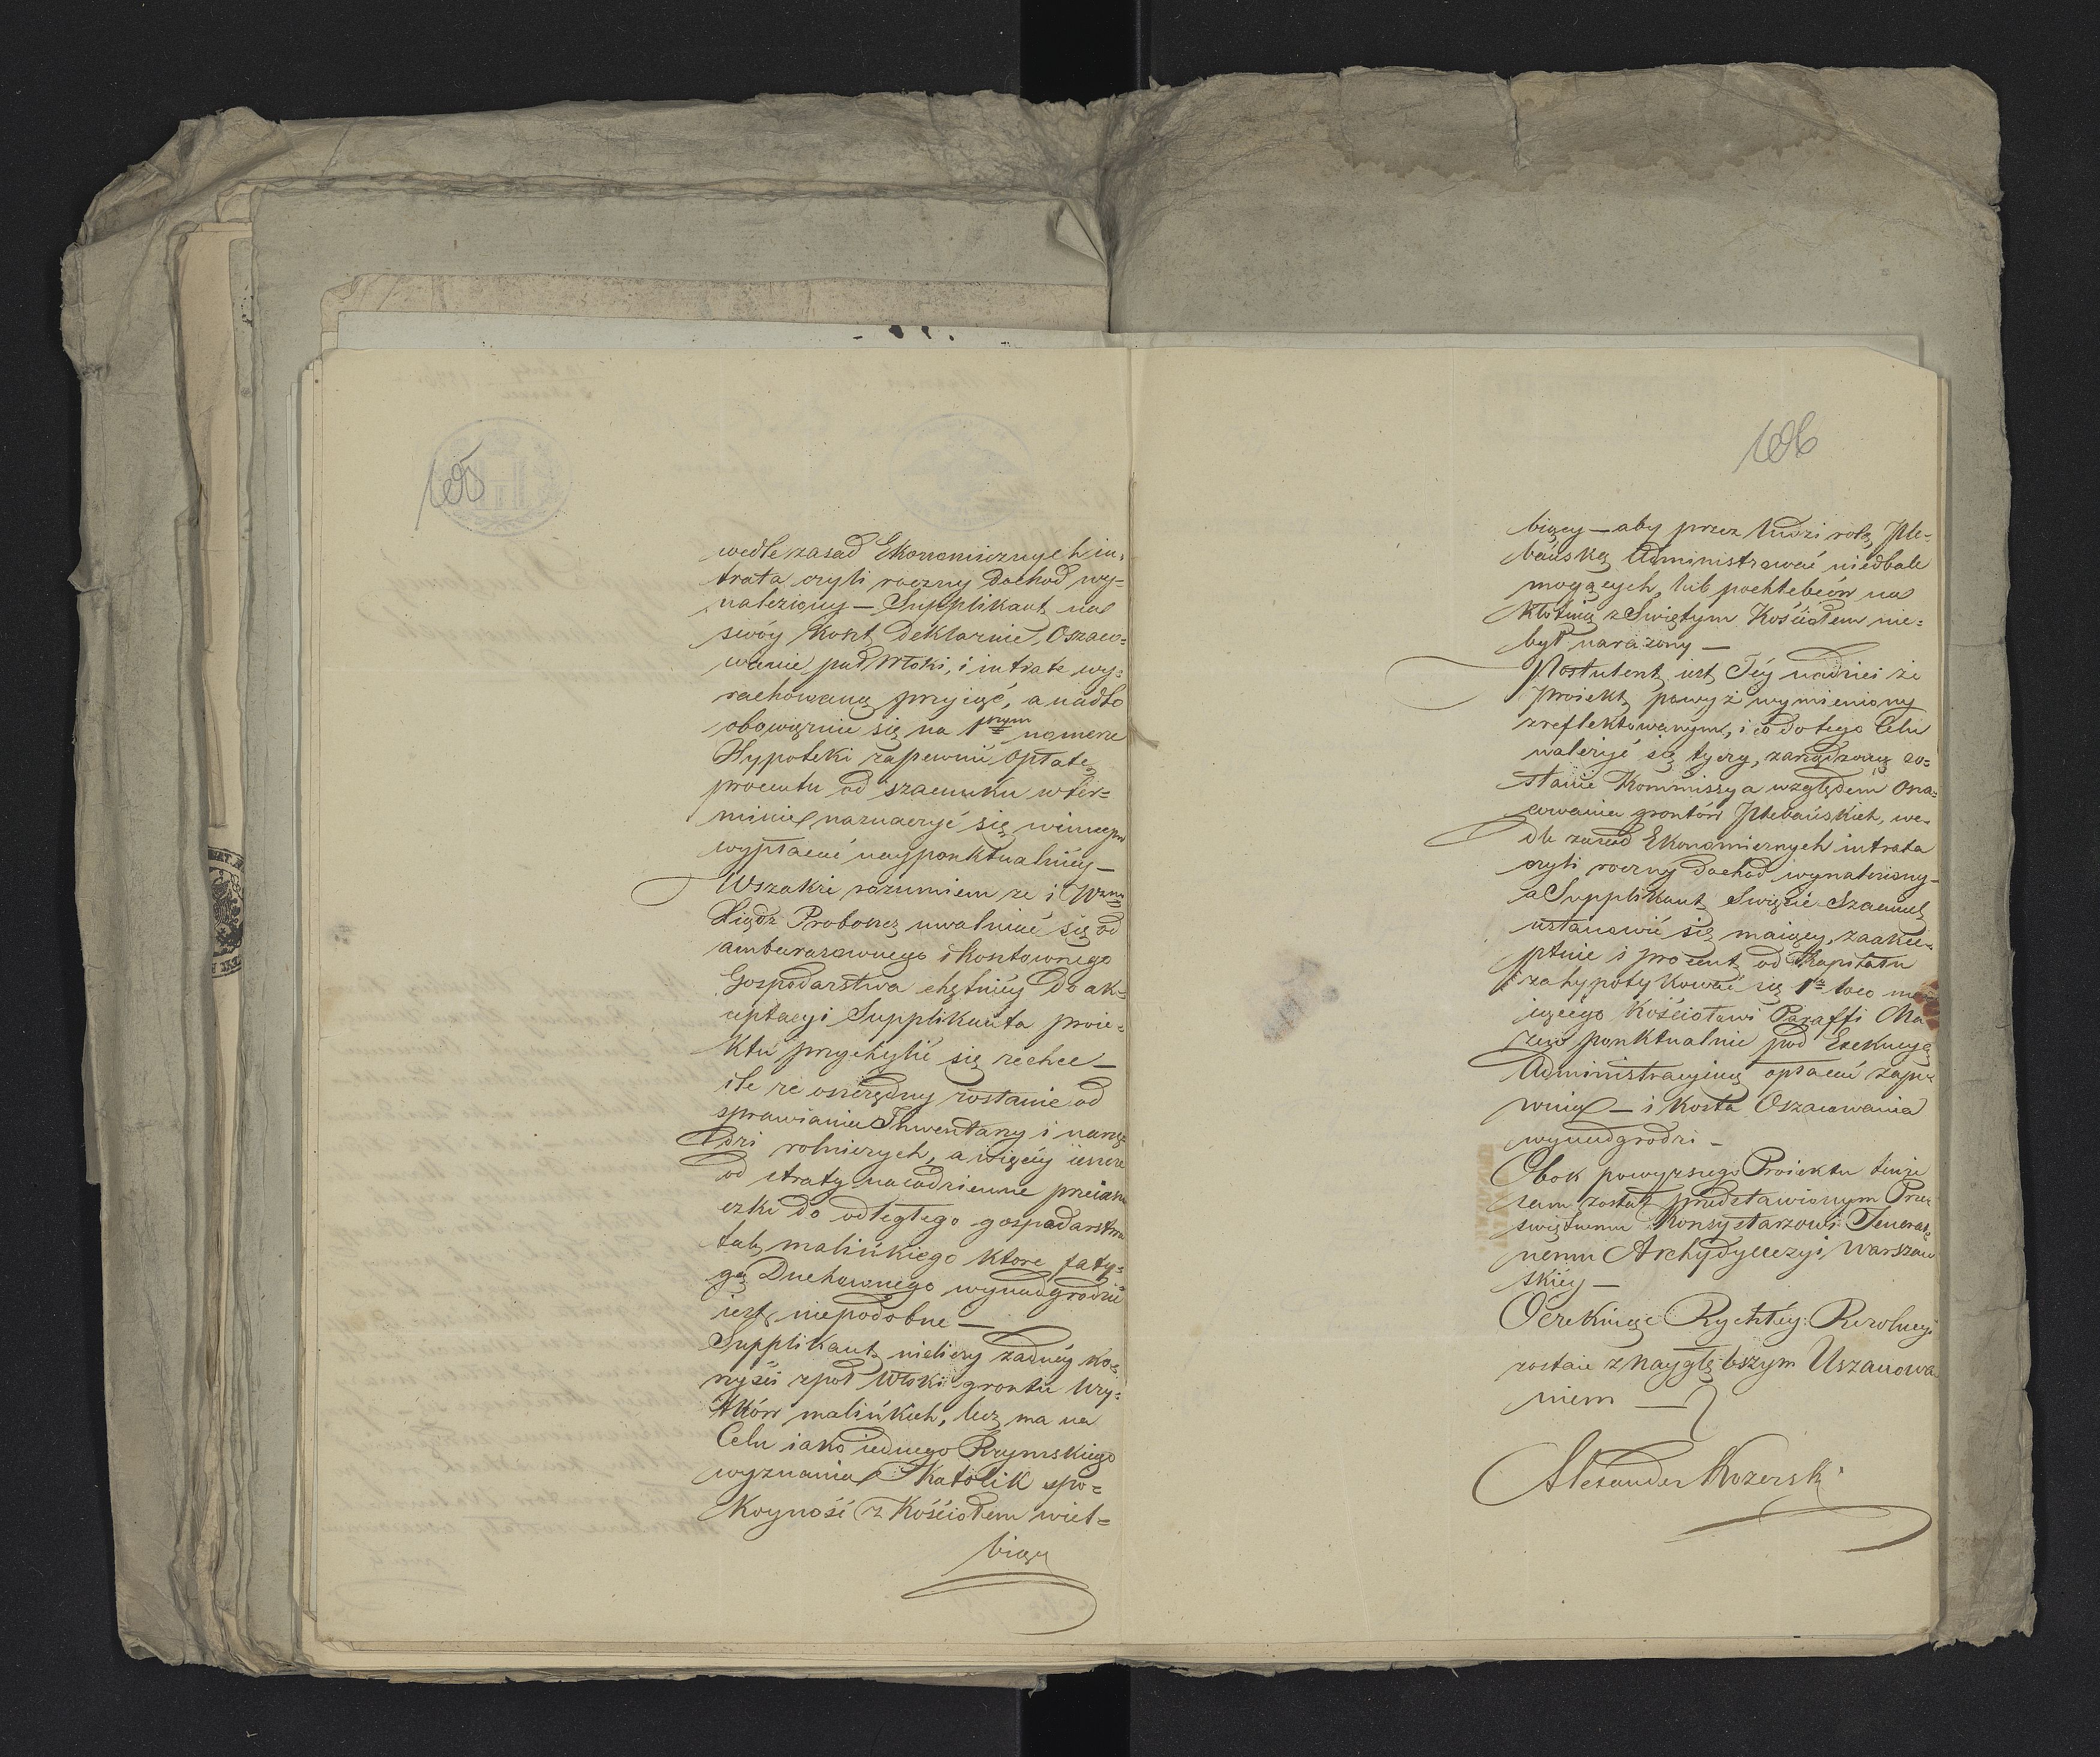 105
wedle zasad Ekonomicznych in-
trata czyli roczny dochod wy-
naleziony — Supplikant na
swóy koszt deklaruie, Oszaco-
wanie puł Włoki, i intratę wy-
rachowaną przyiąć, a nadto
obowiązuie się na 1szym numerze
Hypoteki zapewnić opłatę
procentu od szacunku w ter-
minie naznaczyć się winnym
wypłacać nayponktualniey —
Wszakże rozumiem że i
Xiądz Proboszcz uwalniać się od
ambarasownego i kosztownego
Gospodarstwa chętniey do ak-
ceptacyi Supplikanta proie-
ktu przychylić się zechce —
ile że oszczędny zostanie od
sprawiania Inwentarzy i narzę-
dzi rolniczych, a więcey ieszcze
od straty na codzienne
do odległego gospodarstwa
tak malińkiego ktore faty-
gę Duchownego wynadgrodzić
iest niepodobne —
Supplikant nieliczy żadney ko-
rzyści z puł Włoki grontu Wzy-
tków malińkich, lecz ma na
Celu iako iednego Rzymskiego
wyznania Katolik spo-
koyność z Kościołem wiel-
biący
106
biący — aby przez ludzi rolę Ple-
bańską Administrować niedbale
mogących, lub pochlebców na
kłótnią z Swiętym Kościołem nie-
był narażony —
Postulent iest Téy nadziei że
proiekt powyż wymieniony
zreflektowanym, i co do tego Celu
należyć się tyczy, zarządzoną zo-
stanie Kommissya względem osza-
cowania grontów Plebańskich, we-
dle zasad Ekonomicznych intrata
czyli roczny dochód wynaleziony —
a Supplikant Swięcie Szacunek
ustanowić się maiący, zaakce-
ptuie i procent od Kapitału
zahypotykować się 1o loco ma-
iącego Kościołowi Paraffi Ma
ponktualnie pod Exekucyą
Administracyiną opłacać zape-
wnia — i koszta Oszacowania
wynadgrodzi —
Obok powyższego Proiektu tenże
sam został przedstawionym Prze-
świętnemu Konsystarzowi Jeneral-
nemu Archydyecezyi Warszaw-
skiey —
Oczekuiąc Rychłey Rezolucyi
zostaie z naygłębszym Uszanowa-
niem —
Alexander Kozerski